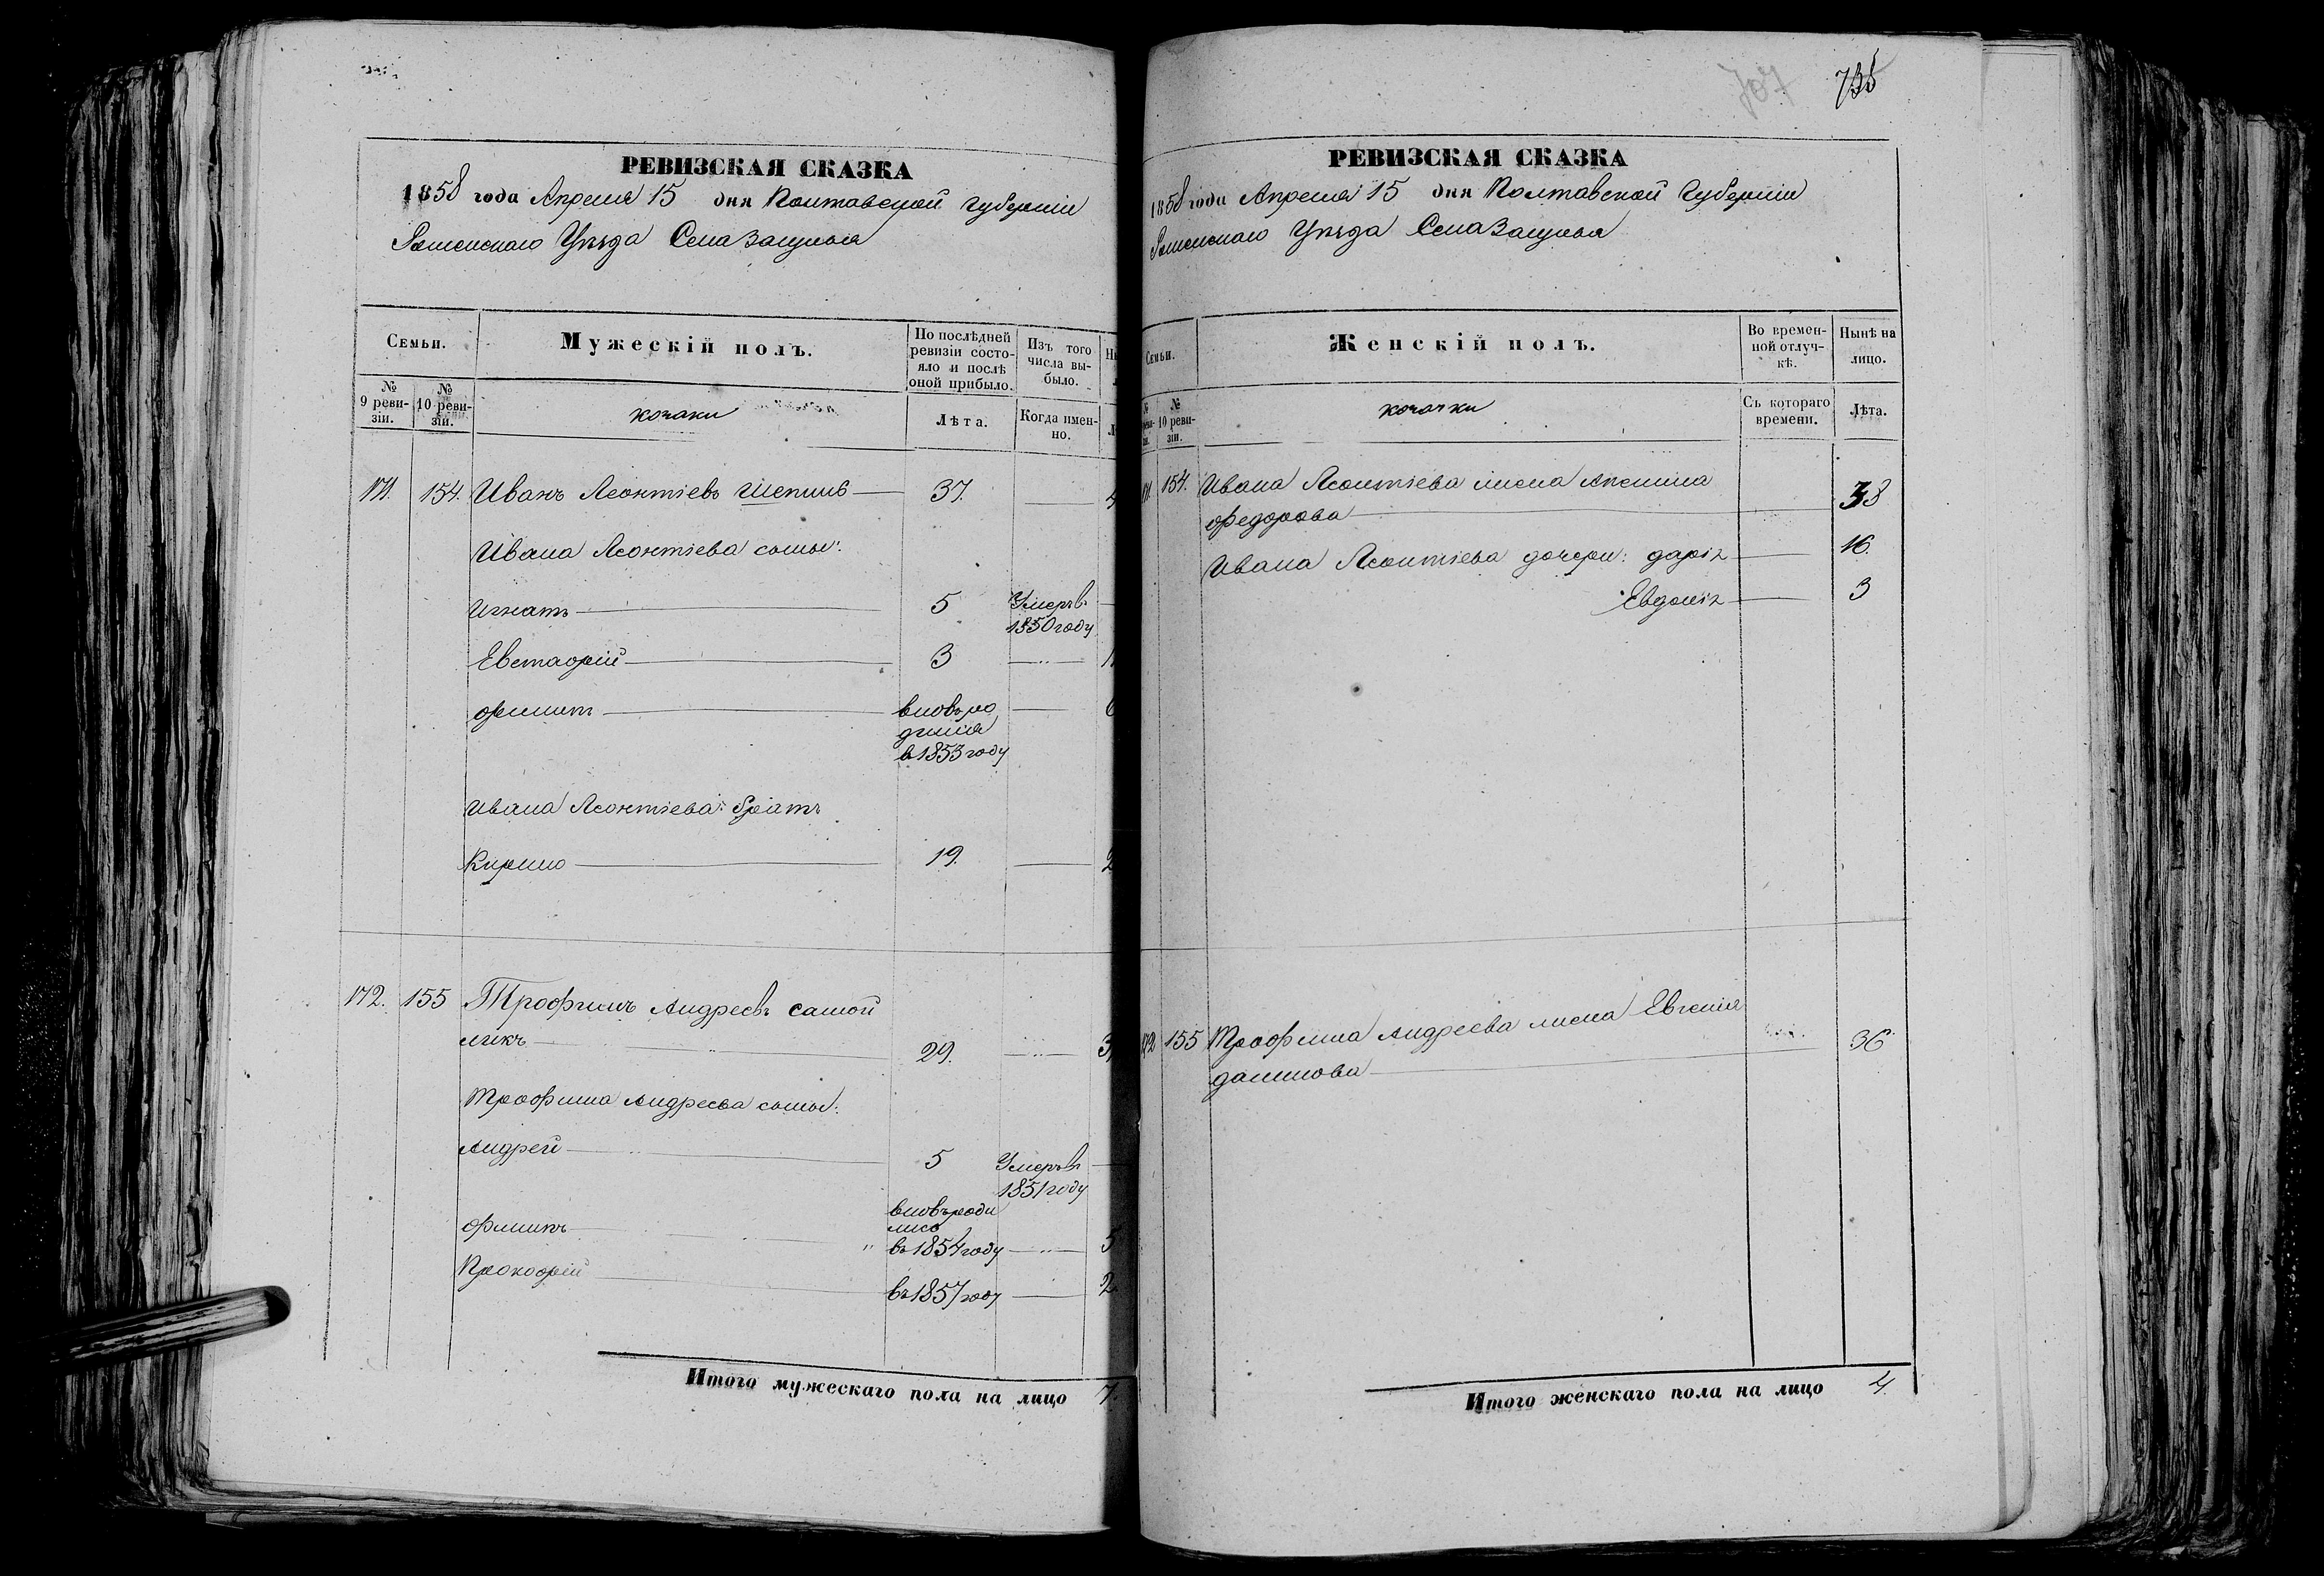 РЕВИЗСКАЯ СКАЗКА
1858 года Апреля 15 дня Полтавской Губерніи
Роменскаго Уѣзда Села
Семьи.
Мужескій полъ.
По послѣдней ревизіи состояло и послѣ оной прибыло.
Изъ того числа выбыло.
№ 9 ревизіи.
№ 10 ревизіи.
козаки
Лѣта.
Когда именно.
171. 154. Иванъ Леонтіевъ 37.
Ивана Леонтіева сыны:
Игнатъ 5 Умеръ въ
1850 году
Евстафій 3
Филипъ вновь ро
дился
в 1853 году
Ивана Леонтіева: братъ
Кирило 19.
172. 155 Трофимъ Андреевъ Самой
ликъ 29.
Трофима Андреева сыны:
Андрей 5 Умеръ въ
1851 году
вновь роди
лись
Филипъ " въ 1854 году 5
Прокофій въ 1857 году 2
Итого мужескаго пола на лицо 7.
707 735
РЕВИЗСКАЯ СКАЗКА
1858 года Апреля 15 дня Полтавской Губерніи
Роменскаго Уѣзда Села
Семьи.
Женскій полъ.
Во временной отлучкѣ.
Нынѣ на лицо.
№ 10 ревизіи.
козачки
Съ котораго времени.
Лѣта.
154. Ивана Леонтіева жена Аксинія
Федорова 38
Ивана Леонтіева дочери: Дарія 16.
Евдокія 3
155 Трофима Андреева жена Евгенія
Данилова 36
Итого женскаго пола на лицо 4.